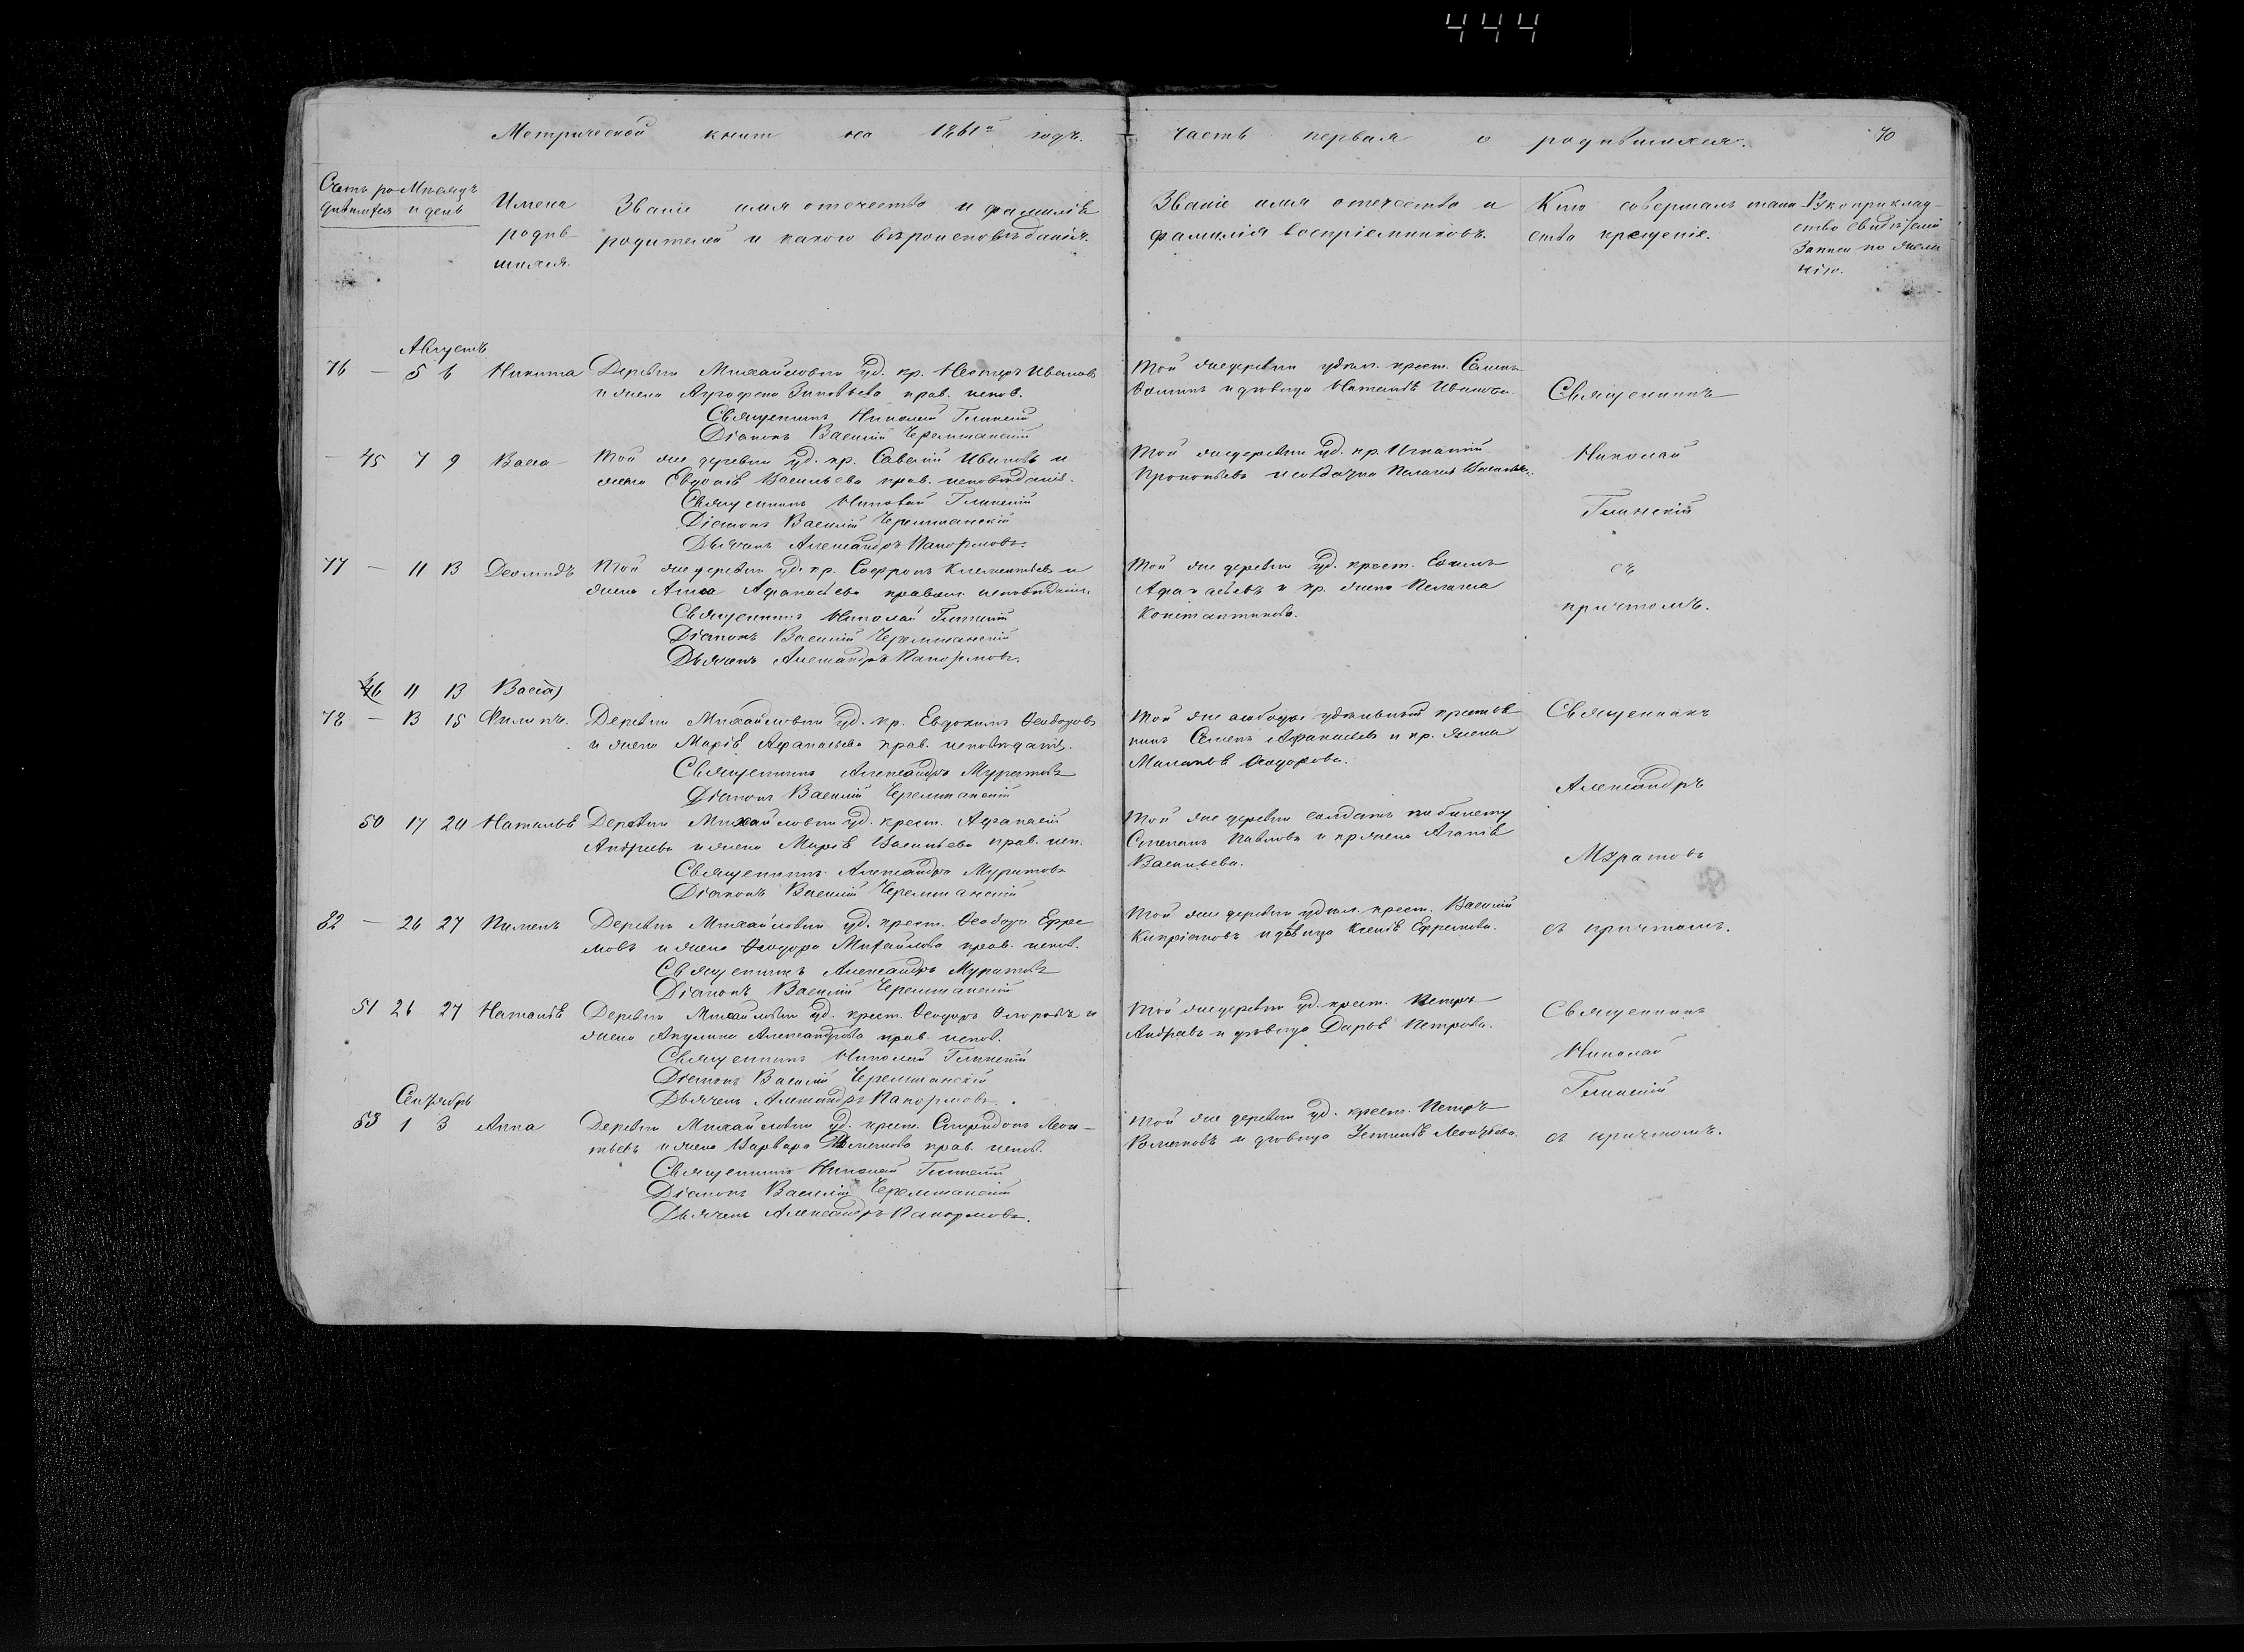 444
Метрической книги на 1861й годъ.
часть первая о родившихся.
70
Счетъ родившихся
Мѣсяцъ и день
Имена
родив
шихся.
Званіе имя отечество и фамилія
родителей и какого вѣроисповѣданія.
Званіе имя отечество и
фамилія воспріемниковъ.
Кто совершалъ таин
ство крещеніе.
Рукоприклад-
ство свидѣтелей
записи по жела
нію.
Августъ
76 — 5 6 Никита Деревни Михайловки уд. кр. Несторъ Ивановъ
и жена Агрофена Зиновьева прав. испов.
Священникъ Николай Глинскій
Діаконъ Василій Черемшанскій
Той же деревни удѣл. крест. Семенъ
и дѣвица Наталія Иванова.
Священникъ
— 45 7 9 Васса Той же деревни уд. кр. Савелій Ивановъ и
жена Евдокія Васильева прав. исповѣданія.
Священникъ Николай Глинскій
Діаконъ Василій Черемшанскій
Дьячекъ Александръ Панормовъ.
Той же деревни уд. кр. Игнатій
Прокопьевъ и солдатка Пелагея Васильева.
Николай
Глинскій
77 — 11 13 Деомидъ Той же деревни уд. кр. Софронъ Клементьевъ и
жена Анна Афанасьева правосл. исповѣданія.
Священникъ Николай Глинскій
Діаконъ Василій Черемшанскій
Дьячекъ Александръ Панормовъ.
Той же деревни уд. крест.
Афанасьевъ и кр. жена Пелагея
Константинова.
съ
причтомъ.
46 11 13 Васса)
78 — 13 15 Филипъ. Деревни Михайловки уд. кр. Евдокимъ Феодоровъ
и жена Марія Афанасьева прав. исповѣданія.
Священникъ Александръ Муратовъ
Діаконъ Василій Черемшанскій
Той же слободы удѣльный крестья
нинъ Семенъ Афанасьевъ и кр. жена
Маланья Феодорова.
Священникъ
Александръ
50 17 20 Наталья Деревни Михайловки уд. крест. Афанасій
Андреевъ и жена Марія Васильева прав. исп.
Священникъ Александръ Муратовъ
Діаконъ Василій Черемшанскій
Той же деревни солдатъ по билету
Степанъ Павловъ и кр жена Агапія
Васильева.
Муратовъ
82 — 26 27 Пименъ Деревни Михайловки уд. крест. Феодоръ Ефре
мовъ и жена Феодора Михайлова прав. испов.
Священникъ Александръ Муратовъ
Діаконъ Василій Черемшанскій
Той же деревни удѣл. крест. Василій
Кипріановъ и дѣвица Ксенія Ефремова.
съ причтомъ.
51 26 27 Наталія Деревни Михайловки уд. крест. Феодоръ Флоровъ и
жена Акулина Александрова прав. испов.
Священникъ Николай Глинскій
Діаконъ Василій Черемшанскій
Дьячекъ Александръ Панормовъ.
Той же деревни уд. крест. Петръ
Андреевъ и дѣвица Дарья Петрова.
Священникъ
Николай
Глинскій
Сентябрь
53 1 3 Анна Деревни Михайловки уд. крест. Спиридонъ Леон-
тьевъ и жена Варвара прав. испов.
Священникъ Николай Глинскій
Діаконъ Василій Черемшанскій
Дьячекъ Александръ Панормовъ.
Той же деревни уд. крест. Петръ
и дѣвица Устинія Леонтьева.
съ причтомъ.